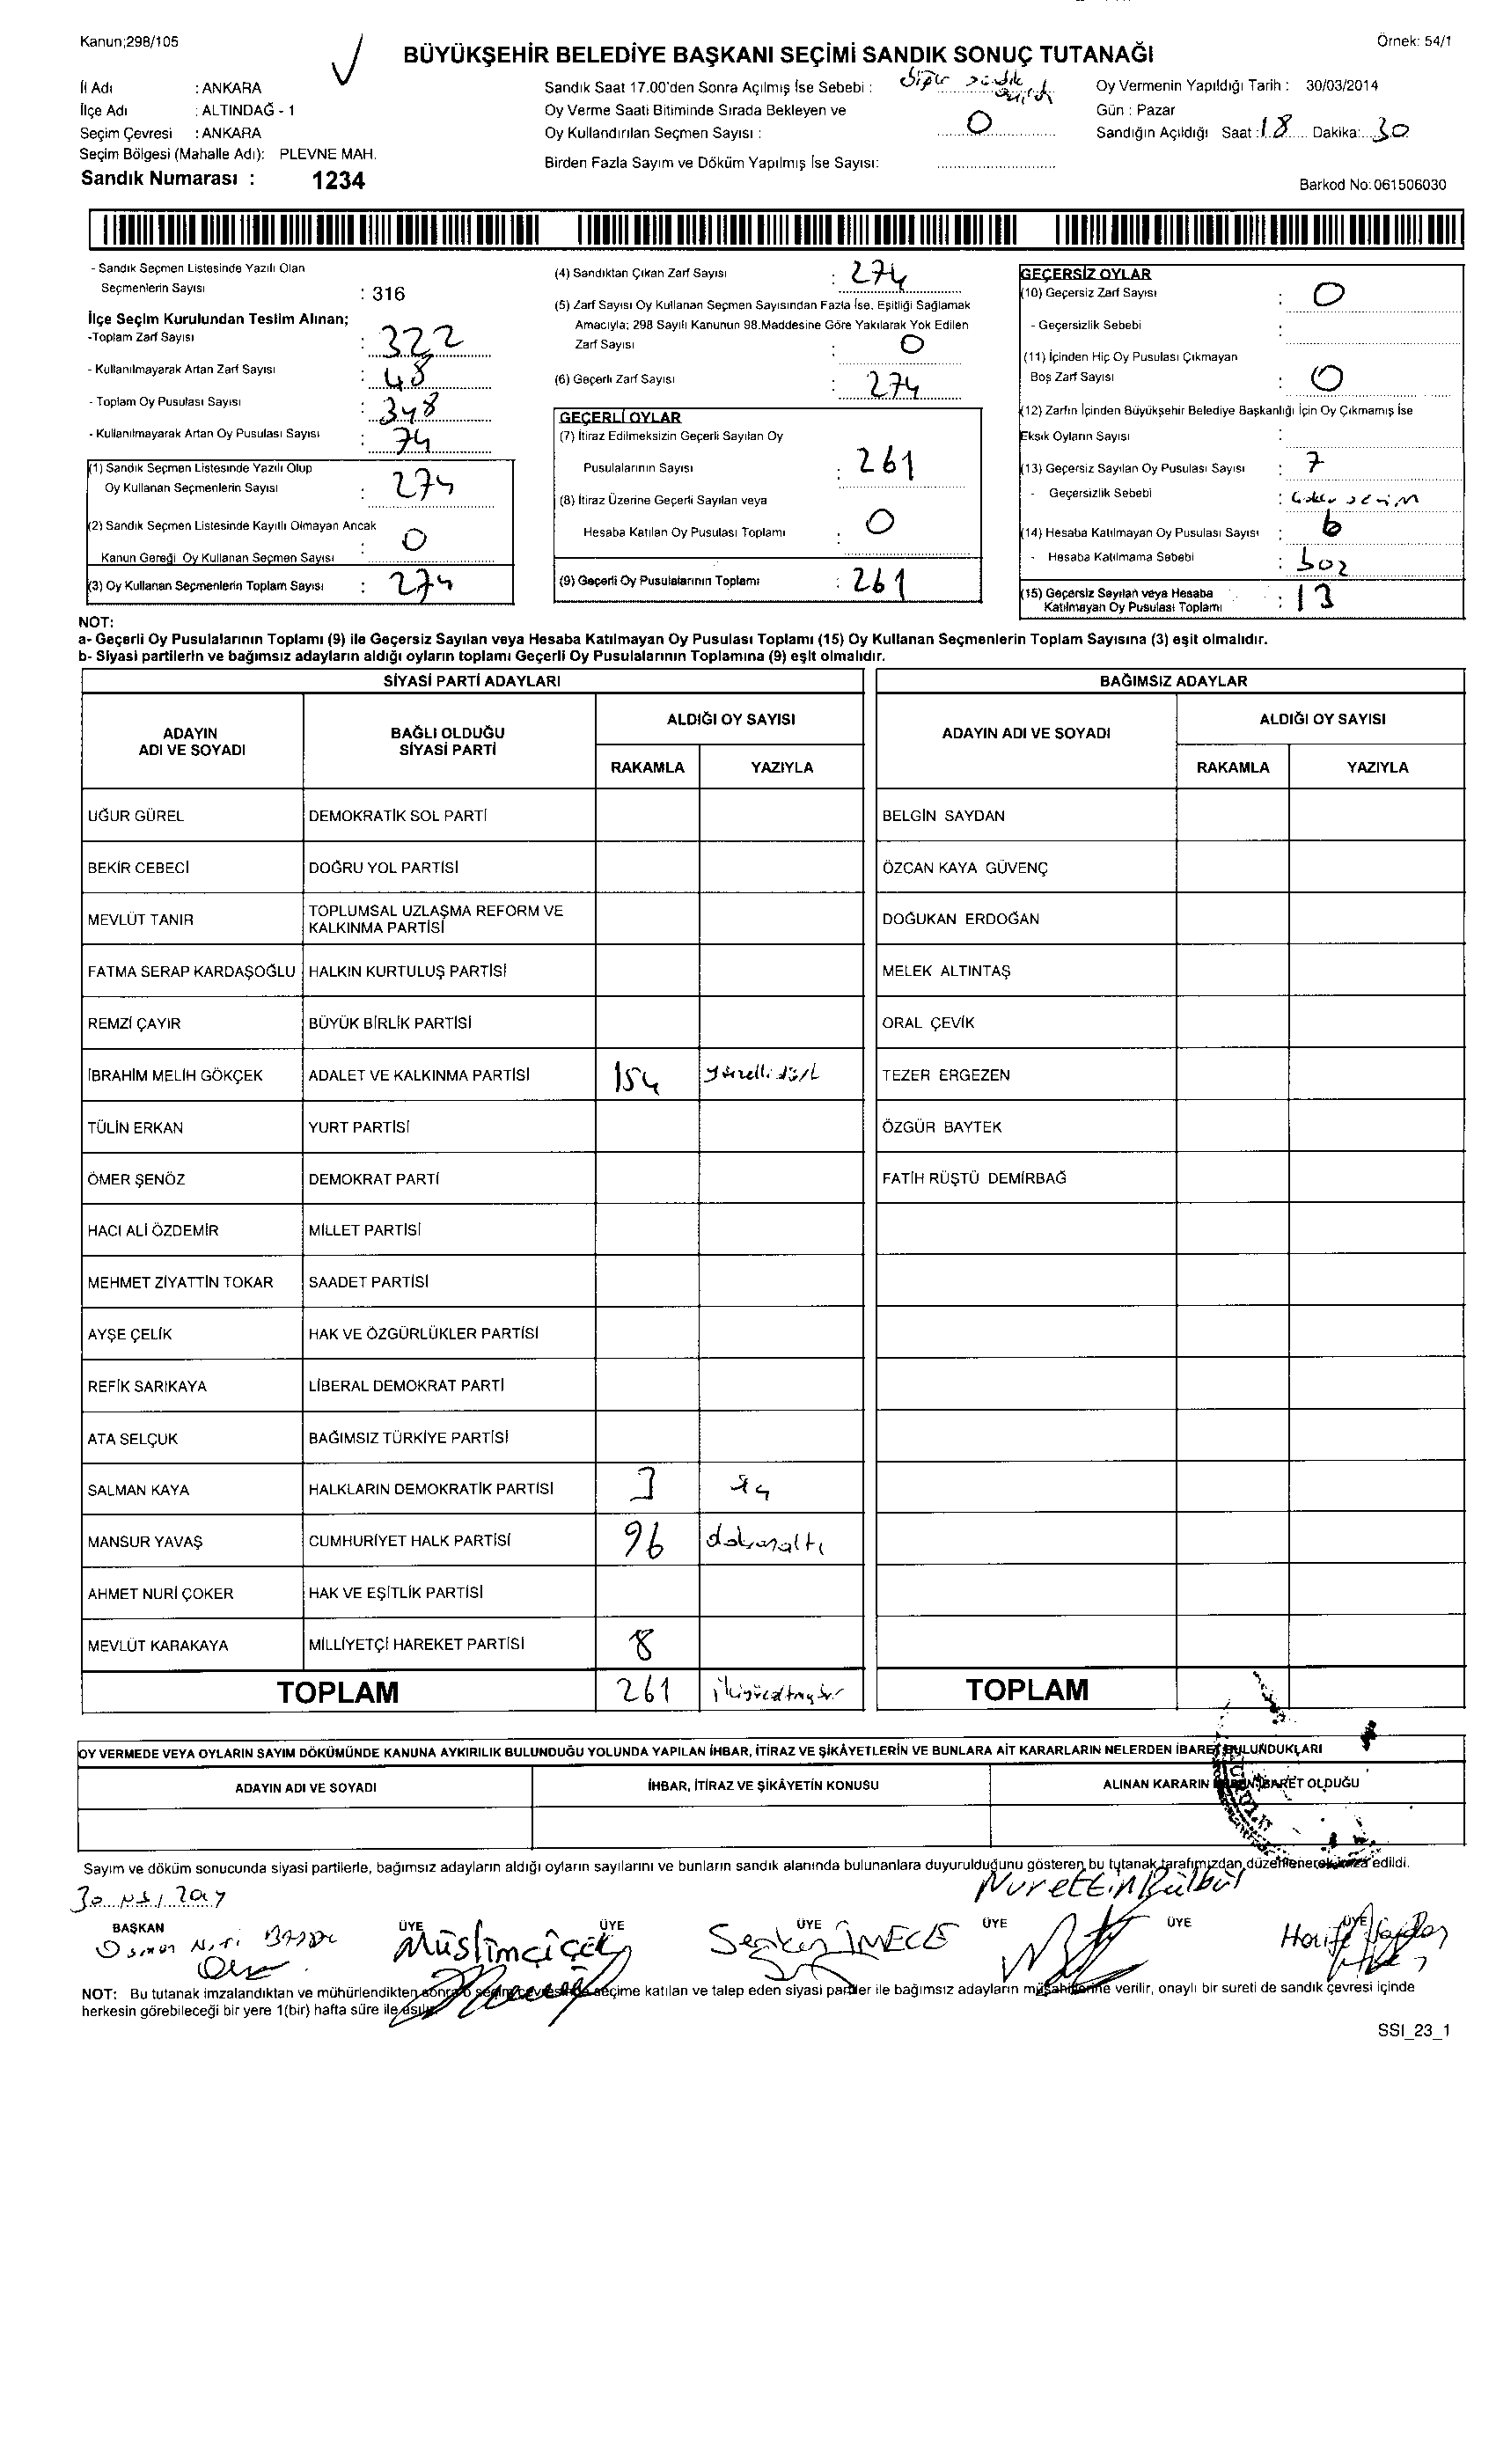 Kanun;298/105
Örnek: 54/1
BÜYÜKŞEHİR BELEDİYE BAŞKANI SEÇİMİ SANDIK SONUÇ TUTANAĞI
İl Adı : ANKARA
İlçe Adı : ALTINDAĞ - 1
Seçim Çevresi : ANKARA
Seçim Bölgesi (Mahalle Adı): PLEVNE MAH.
Sandık Numarası : 1234
Sandık Saat 17.00'den Sonra Açılmış İse Sebebi :
Oy Verme Saati Bitiminde Sırada Bekleyen ve
Oy Kullandırılan Seçmen Sayısı : 0
Birden Fazla Sayım ve Döküm Yapılmış İse Sayısı:
Oy Vermenin Yapıldığı Tarih : 30/03/2014
Gün : Pazar
Sandığın Açıldığı Saat : 18 Dakika: 30
Barkod No: 061506030
- Sandık Seçmen Listesinde Yazılı Olan
Seçmenlerin Sayısı : 316
İlçe Seçim Kurulundan Teslim Alınan;
-Toplam Zarf Sayısı : 322
- Kullanılmayarak Artan Zarf Sayısı : 48
- Toplam Oy Pusulası Sayısı : 348
- Kullanılmayarak Artan Oy Pusulası Sayısı : 74
(1) Sandık Seçmen Listesinde Yazılı Olup
Oy Kullanan Seçmenlerin Sayısı : 274
(2) Sandık Seçmen Listesinde Kayıtlı Olmayan Ancak
Kanun Gereği Oy Kullanan Seçmen Sayısı : 0
(3) Oy Kullanan Seçmenlerin Toplam Sayısı : 274
(4) Sandıktan Çıkan Zarf Sayısı : 274
(5) Zarf Sayısı Oy Kullanan Seçmen Sayısından Fazla İse, Eşitliği Sağlamak
Amacıyla; 298 Sayılı Kanunun 98.Maddesine Göre Yakılarak Yok Edilen
Zarf Sayısı : 0
(6) Geçerli Zarf Sayısı : 274
GEÇERLİ OYLAR
(7) İtiraz Edilmeksizin Geçerli Sayılan Oy
Pusulalarının Sayısı : 261
(8) İtiraz Üzerine Geçerli Sayılan veya
Hesaba Katılan Oy Pusulası Toplamı : 0
(9) Geçerli Oy Pusulalarının Toplamı : 261
GEÇERSİZ OYLAR
(10) Geçersiz Zarf Sayısı : 0
- Geçersizlik Sebebi :
(11) İçinden Hiç Oy Pusulası Çıkmayan
Boş Zarf Sayısı : 0
(12) Zarfın İçinden Büyükşehir Belediye Başkanlığı İçin Oy Çıkmamış İse
Eksik Oyların Sayısı :
(13) Geçersiz Sayılan Oy Pusulası Sayısı : 7
- Geçersizlik Sebebi :
(14) Hesaba Katılmayan Oy Pusulası Sayısı : 6
- Hesaba Katılmama Sebebi : boz
(15) Geçersiz Sayılan veya Hesaba
Katılmayan Oy Pusulası Toplamı : 13
NOT:
a- Geçerli Oy Pusulalarının Toplamı (9) ile Geçersiz Sayılan veya Hesaba Katılmayan Oy Pusulası Toplamı (15) Oy Kullanan Seçmenlerin Toplam Sayısına (3) eşit olmalıdır.
b- Siyasi partilerin ve bağımsız adayların aldığı oyların toplamı Geçerli Oy Pusulalarının Toplamına (9) eşit olmalıdır.
SİYASİ PARTİ ADAYLARI
ADAYIN ADI VE SOYADI
BAĞLI OLDUĞU SİYASİ PARTİ
ALDIĞI OY SAYISI
RAKAMLA YAZIYLA
UĞUR GÜREL DEMOKRATİK SOL PARTİ
BEKİR CEBECİ DOĞRU YOL PARTİSİ
MEVLÜT TANIR TOPLUMSAL UZLAŞMA REFORM VE KALKINMA PARTİSİ
FATMA SERAP KARDAŞOĞLU HALKIN KURTULUŞ PARTİSİ
REMZİ ÇAYIR BÜYÜK BİRLİK PARTİSİ
İBRAHİM MELİH GÖKÇEK ADALET VE KALKINMA PARTİSİ 154
TÜLİN ERKAN YURT PARTİSİ
ÖMER ŞENÖZ DEMOKRAT PARTİ
HACI ALİ ÖZDEMİR MİLLET PARTİSİ
MEHMET ZİYATTİN TOKAR SAADET PARTİSİ
AYŞE ÇELİK HAK VE ÖZGÜRLÜKLER PARTİSİ
REFİK SARIKAYA LİBERAL DEMOKRAT PARTİ
ATA SELÇUK BAĞIMSIZ TÜRKİYE PARTİSİ
SALMAN KAYA HALKLARIN DEMOKRATİK PARTİSİ 3
MANSUR YAVAŞ CUMHURİYET HALK PARTİSİ 96 doksanaltı
AHMET NURİ ÇOKER HAK VE EŞİTLİK PARTİSİ
MEVLÜT KARAKAYA MİLLİYETÇİ HAREKET PARTİSİ 8
TOPLAM 261 ikiyüzatmışbir
BAĞIMSIZ ADAYLAR
ADAYIN ADI VE SOYADI
ALDIĞI OY SAYISI
RAKAMLA YAZIYLA
BELGİN SAYDAN
ÖZCAN KAYA GÜVENÇ
DOĞUKAN ERDOĞAN
MELEK ALTINTAŞ
ORAL ÇEVİK
TEZER ERGEZEN
ÖZGÜR BAYTEK
FATİH RÜŞTÜ DEMİRBAĞ
TOPLAM
OY VERMEDE VEYA OYLARIN SAYIM DÖKÜMÜNDE KANUNA AYKIRILIK BULUNDUĞU YOLUNDA YAPILAN İHBAR, İTİRAZ VE ŞİKÂYETLERİN VE BUNLARA AİT KARARLARIN NELERDEN İBARET BULUNDUKLARI
ADAYIN ADI VE SOYADI
İHBAR, İTİRAZ VE ŞİKÂYETİN KONUSU
ALINAN KARARIN NEDEN İBARET OLDUĞU
Sayım ve döküm sonucunda siyasi partilerle, bağımsız adayların aldığı oyların sayılarını ve bunların sandık alanında bulunanlara duyurulduğunu gösteren bu tutanak tarafımızdan düzenlenerek imza edildi.
Nurettin Bülbül
BAŞKAN ÜYE ÜYE ÜYE ÜYE ÜYE ÜYE
Müslim çiçek Serkan İMECE
NOT: Bu tutanak imzalandıktan ve mühürlendikten sonra o seçim çevresinde seçime katılan ve talep eden siyasi partiler ile bağımsız adayların müşahitlerine verilir, onaylı bir sureti de sandık çevresi içinde
herkesin görebileceği bir yere 1(bir) hafta süre ile asılır.
SSI_23_1